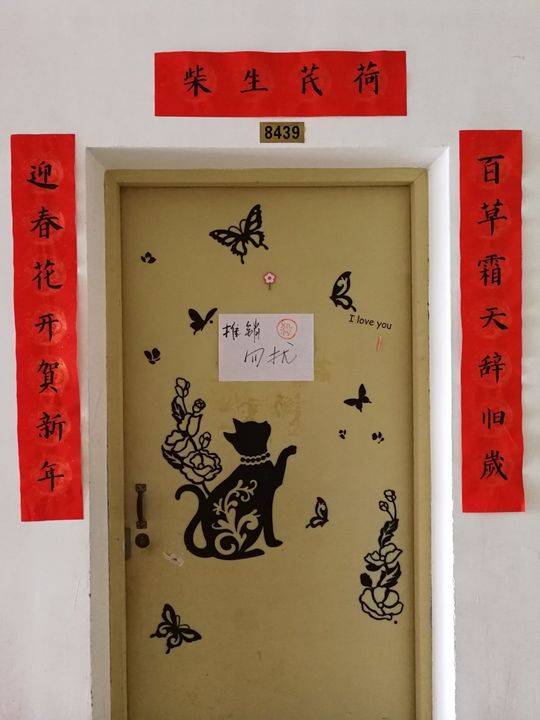 柴生芪荷
8439
百草霜天辞旧歲
迎春花开賀新年
I love you
推销
勿扰